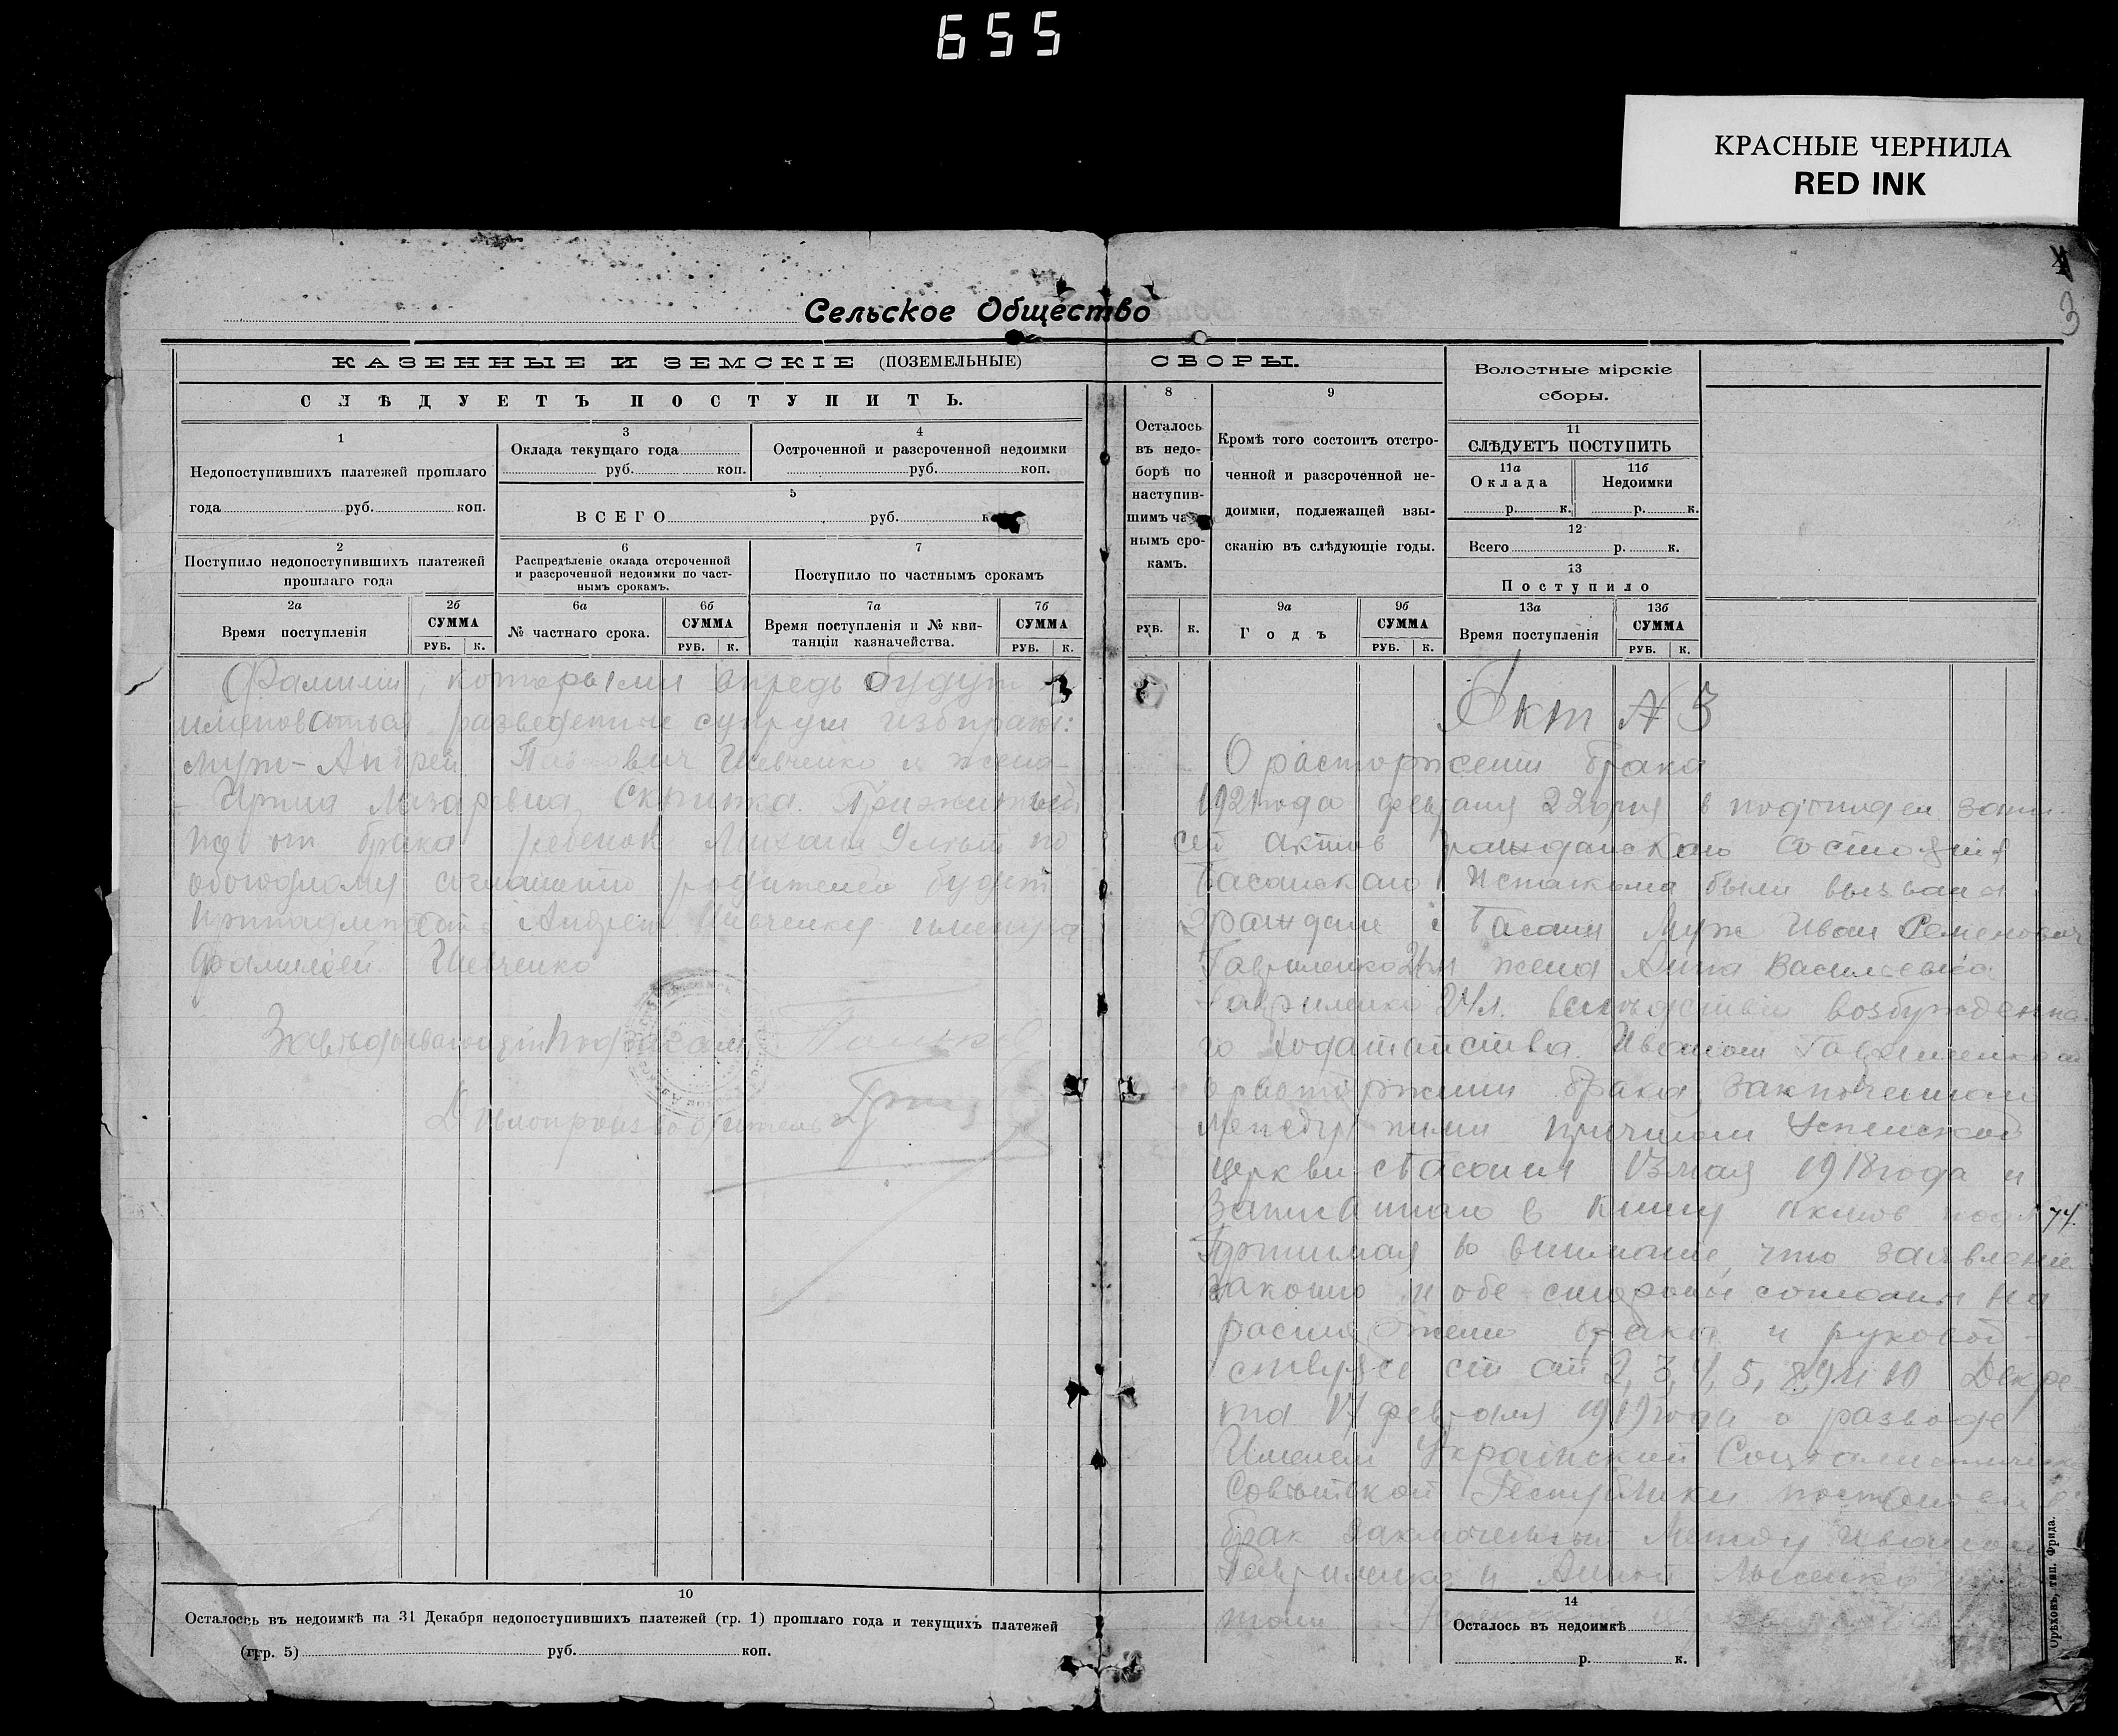 655
КРАСНЫЕ ЧЕРНИЛА
RED INK
3
Сельское Общество
КАЗЕННЫЕ И ЗЕМСКІЕ (ПОЗЕМЕЛЬНЫЕ) СБОРЫ.
СЛѢДУЕТЪ ПОСТУПИТЬ.
1
Недопоступившихъ платежей прошлаго
года руб. коп.
2
Поступило недопоступившихъ платежей
прошлаго года
2а
Время поступленія
2б
СУММА
РУБ. К.
3
Оклада текущаго года
руб. коп.
4
Остроченной и разсроченной недоимки
руб. коп.
5
ВСЕГО руб.
6
Распредѣленіе оклада отсроченной
и разсроченной недоимки по част-
нымъ срокамъ.
6а
№ частнаго срока.
6б
СУММА
РУБ. К.
7
Поступило по частнымъ срокамъ
7а
Время поступленія и № кви-
танціи казначейства.
7б
СУММА
РУБ. К.
8
Осталось
въ недо-
борѣ по
наступив-
шимъ
нымъ сро-
камъ.
РУБ. К.
9
Кромѣ того состоитъ отстро-
ченной и разсроченной не-
доимки, подлежащей взы-
сканію въ слѣдующіе годы.
9а
Годъ
9б
СУММА
РУБ. К.
Волостные мірскіе
сборы.
11
СЛѢДУЕТЪ ПОСТУПИТЬ
11а
Оклада
р. к.
11б
Недоимки
р. к.
12
Всего р. к.
13
Поступило
13а
Время поступленія
13б
СУММА
РУБ. К.
Фамилии, которыми впредь будут
именоваться разведенные супруги избирают:
муж - Андрей Павлович Шевченко и жена -
- Ирина Лазаревна Скрипка.
от брака ребенок Михаил по
обоюдному соглашению родителей будет
Андрею Шевченку
фамилией Шевченко
Заведывающий подотделом
Делопроизводитель
Акт № 3
О расторжении брака
1921 года февраля 22 дня в подотдел запи-
сей актов гражданского состояния
Басанского Исполкома были вызваны
граждане с Басани Муж Иван Семенович
Гавриленко 26 л жена Анна Васильевна
Гавриленко 24 л. вследствии возбужденна-
го ходатайства Иваном Гавриленком
о расторжении брака, заключенного
между ними причтом Успенской
церкви с Басани 13 мая 1918 года и
записанного в книгу актов под № 74.
Принимая во внимание, что заявление
законно и обе стороны согласны на
расторжение брака и руковод-
ствуясь ст ст 2, 3, 4, 5, 8, 9 и 10 Декре-
та 17 февраля 1919 года о разводе
Именем Украинской Социалистической
Советской Республики
брак заключенный между Иваном
Гавриленко и Анной Лысенко
10
Осталось въ недоимкѣ на 31 Декабря недопоступившихъ платежей (гр. 1) прошлаго года и текущихъ платежей
(гр. 5) руб. коп.
14
Осталось въ недоимкѣ
р. к.
Орѣховъ, тип. Фрида.